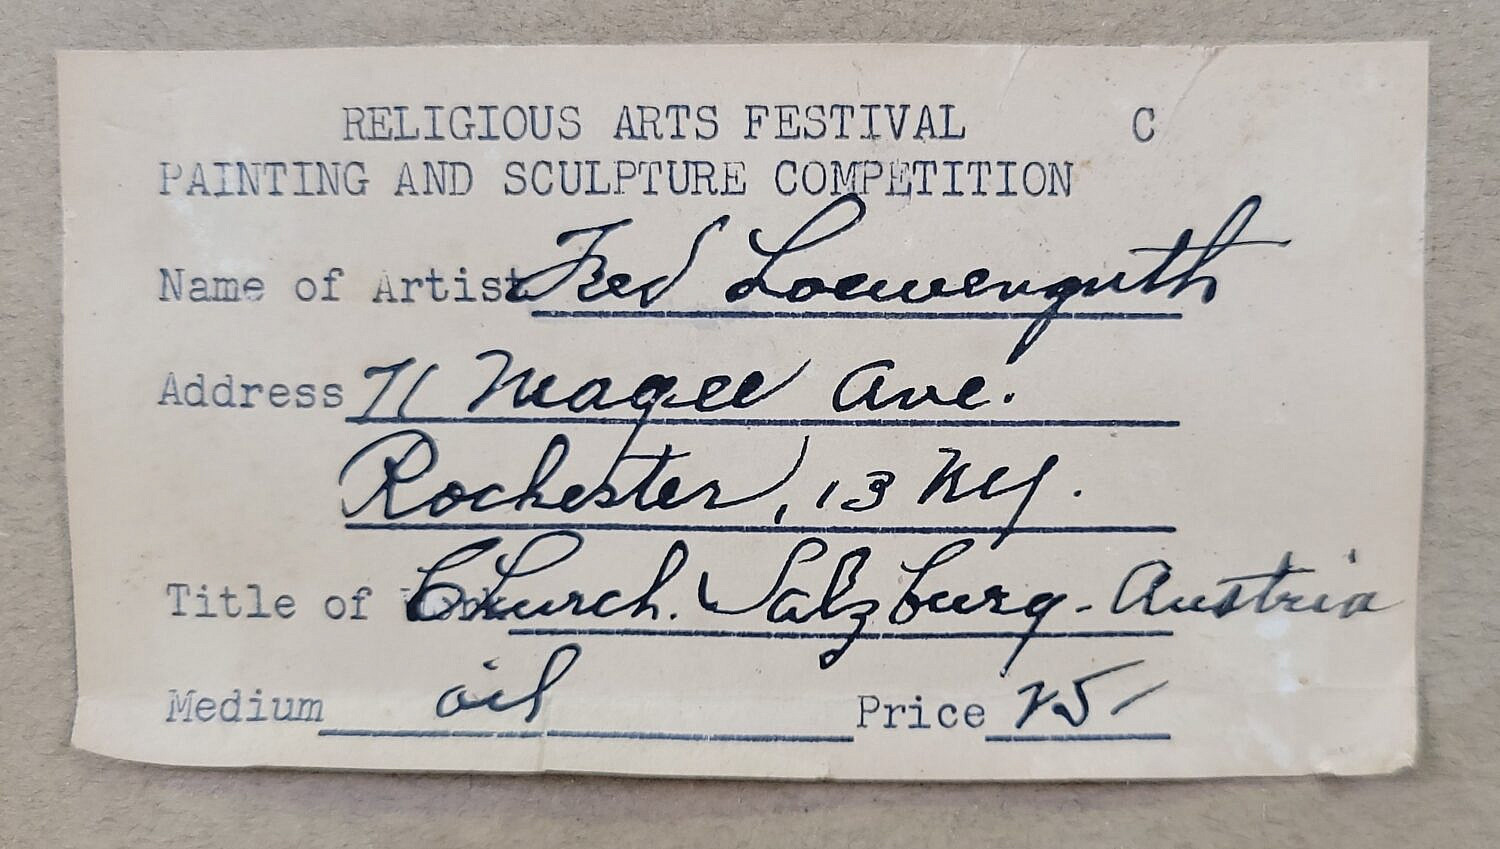 RELIGIOUS ARTS FESTIVAL C
PAINTING AND SCULPTURE COMPETITION
Name of Artist Fred Loewenguth
Address 71 Magee Ave.
Rochester, 13 NY.
Title of Work Church. Salzburg - Austria
Medium oil Price 25-